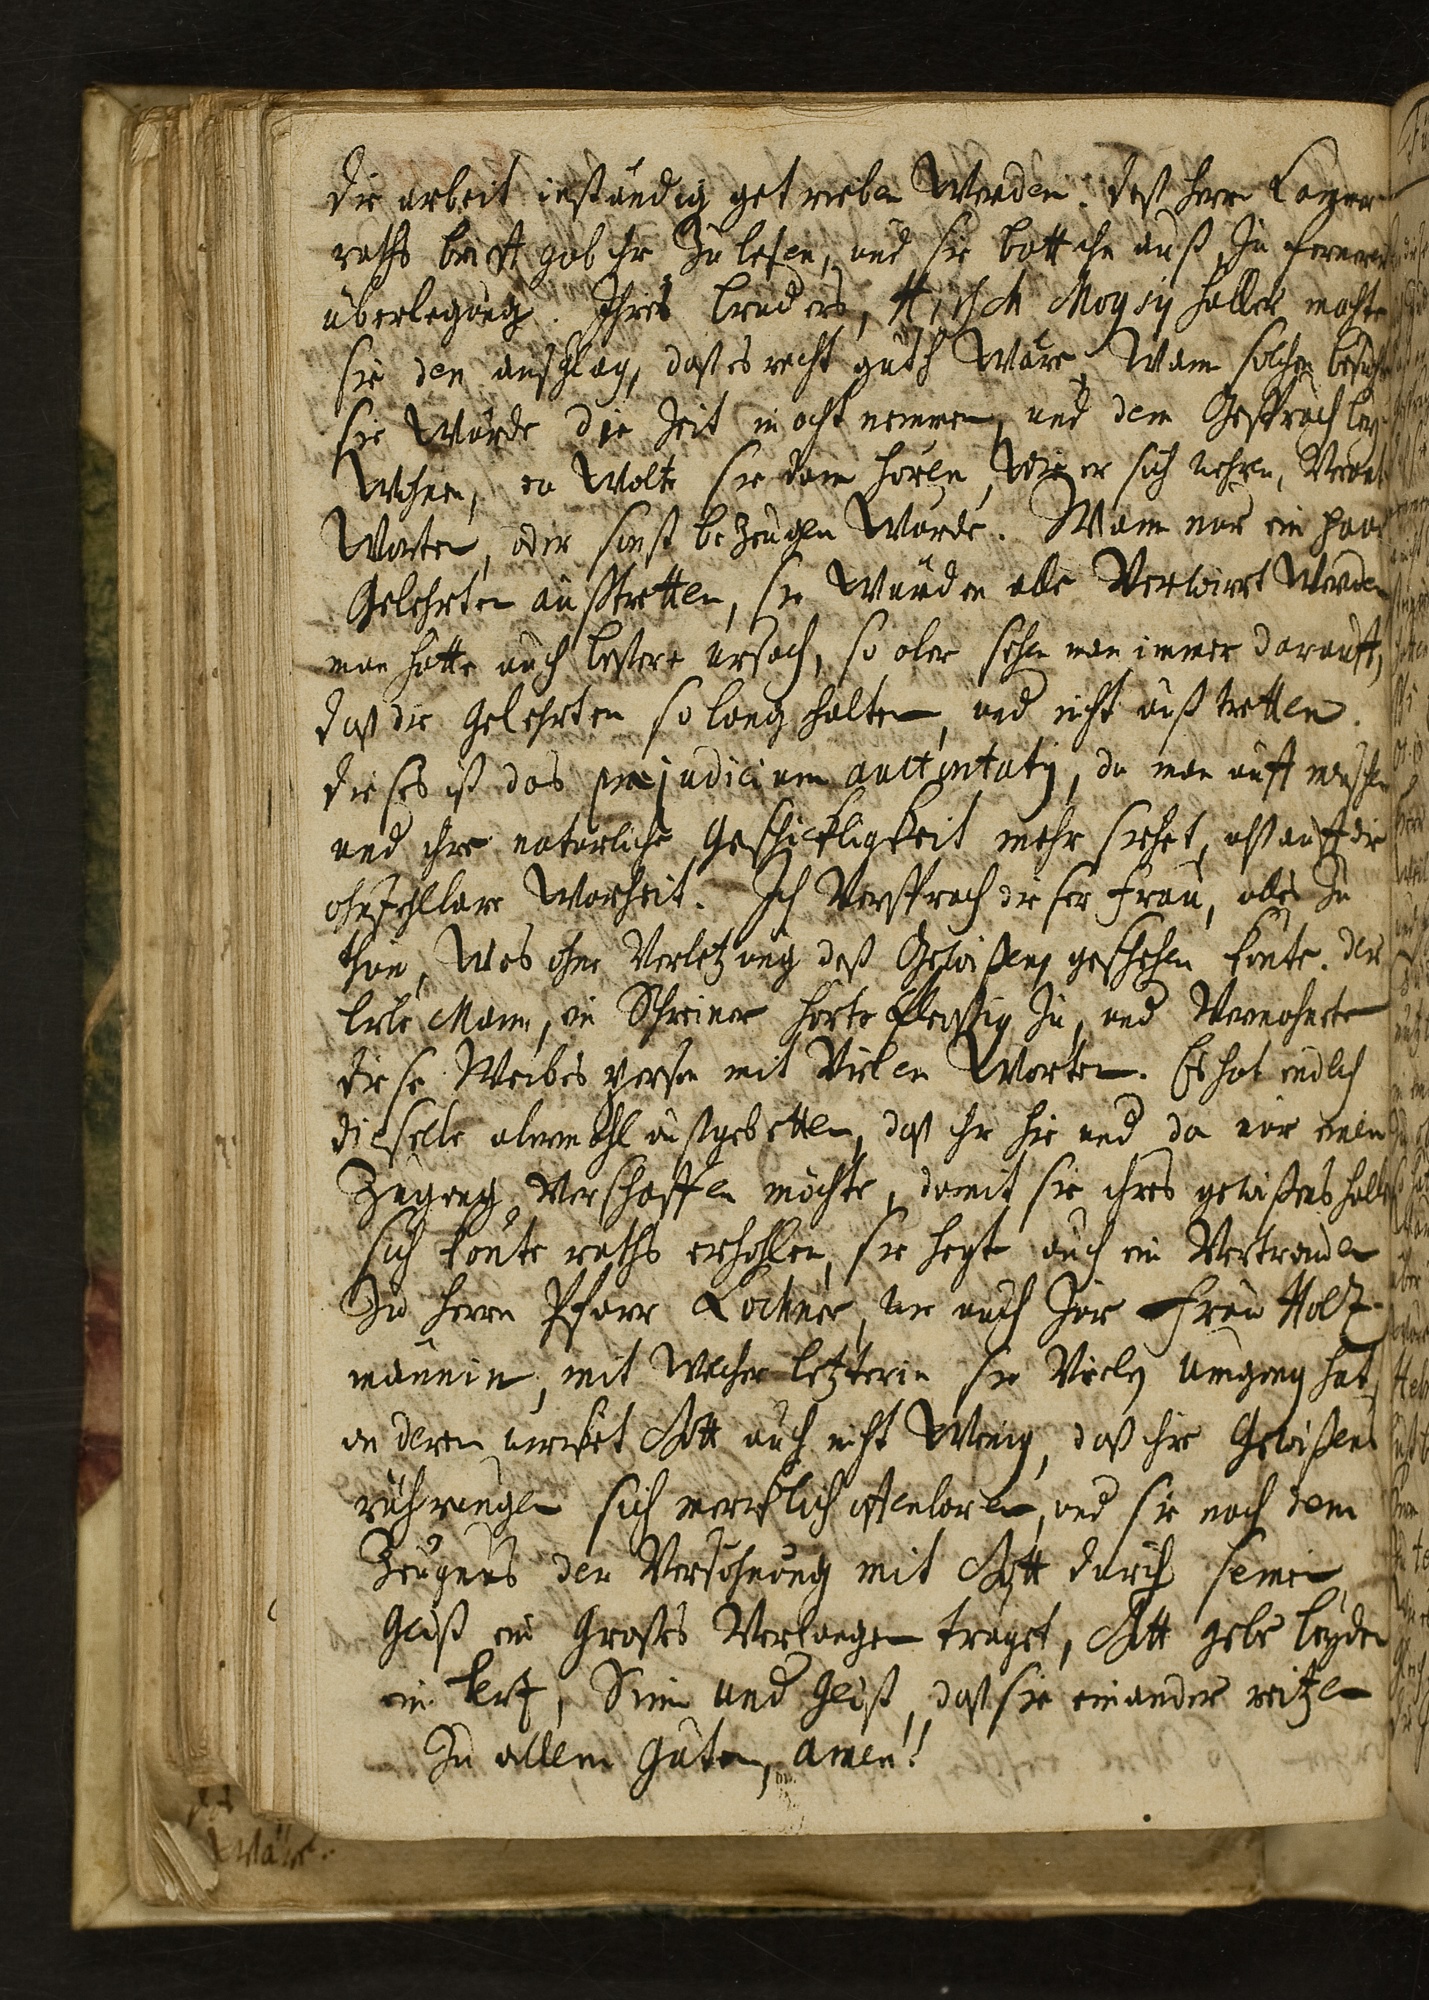 die arbeit inständig getrieben werden. deß herrn Cammer
raths brieff gab ihr zu lesen, und sie batt ihn auß, zu fernerer
überlegung. Ihres bruders, Hirsch Moysis halber machte
sie den anschlag, daß es recht guth wäre, wann solcher besuchte
sie würde die zeit in acht nemmen, und dem Gespräch bey
wohnen, da wolte sie dann hören, wie er sich wehren, verant
worten, oder sonst bezeugen würde. Wann nur ein paar
Gelehrten außtretten, sie würden alle verwirrt werden
man hätte auch bessere ursach, so aber sehe man immer darauff,
daß die gelehrten so lang halten, und nicht außtretten.
dieses ist das præjudicium auctoritatis, da man auff menschen
und ihre naturliche Geschickligkeit mehr siehet, alß auff die
ohnfehlbare Warheit. Ich versprach dieser frau, alles zu
thun, was ohne verletzung deß Gewißens geschehen könte. der
liebe Mann, ein Schreiner hörte fleissig zu, und vermahnete
diese Weibes person mit vielen Worten. Es hat endlich
dieselbe abermahl außgebetten, daß ihr hie und da nur einen
zugang verschaffen möchte, damit sie ihres gewißens halber
sich könte raths erhohlen, sie hegt auch ein Vertrauen
zu herrn Pfarr Lochner, wie auch zur Frau Holtz-
männin, mit welcher letzterin sie vielen umgang hat,
an deren wircket Gott auch nicht wenig, daß ihre Gewißens
rührungen sich mercklich offenbaren, und sie nach dem
Zeugnus der Versöhnung mit Gott durch seinen
Geist ein großes Verlangen träget, Gott gebe beyden
ein hertz, Sinn und Geist, daß sie einander reitzen
zu allem Guten, amen!